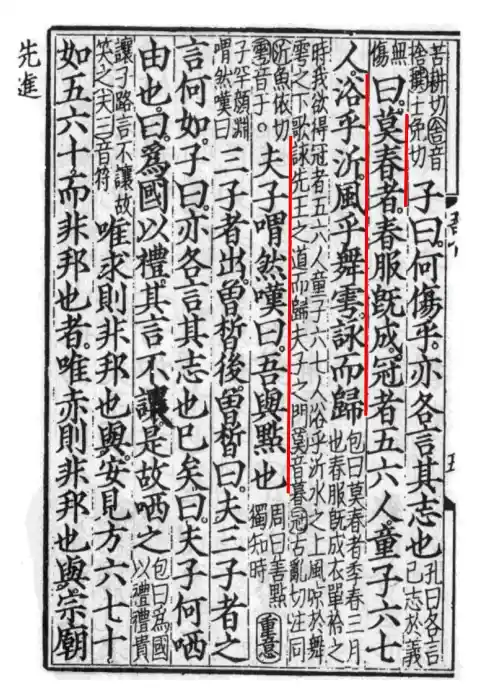 苦耕切舍音
捨撰士免切
子曰。何傷乎。亦各言其志也
孔曰各言
己志於義
無
傷
曰。莫春者。春服既成。冠者五六人。童子六七
人。浴乎沂。風乎舞雩。詠而歸
包曰莫春者季春三月
也春服既成衣單袷之
時我欲得冠者五六人童子六七人浴乎沂水之上風凉於舞
雩之下歌詠先王之道而歸夫子之門莫音暮冠古亂切注同
沂魚依切
雩音于
夫子喟然嘆曰。吾與點也
周曰善點
獨知時
重意
子罕顏淵
喟然嘆曰
三子者出。曾皙後。曾皙曰。夫三子者之
言何如。子曰。亦各言其志也已矣。曰。夫子何哂
由也。曰。爲國以禮。其言不讓。是故哂之
包曰爲國
以禮禮貴
讓子路言不讓故
笑之夫三音符
唯求則非邦也與。安見方六七十
如五六十。而非邦也者。唯赤則非邦也與。宗廟
先進